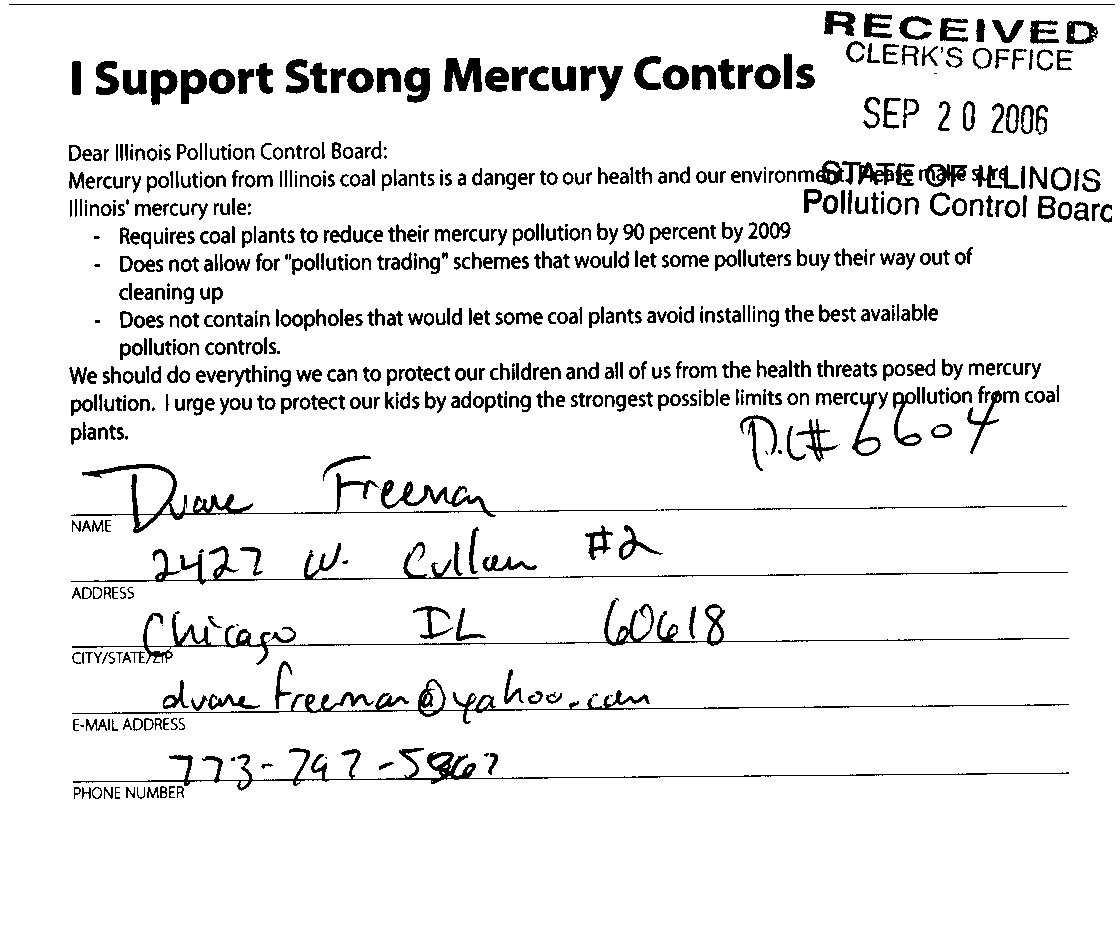 RECEIVED
CLERK'S OFFICE
I Support Strong Mercury Controls
SEP 20 2006
Dear Illinois Pollution Control Board:
Mercury pollution from Illinois coal plants is a danger to our health and our environment. Please make sure
STATE OF ILLINOIS
Illinois' mercury rule:
Pollution Control Board
- Requires coal plants to reduce their mercury pollution by 90 percent by 2009
- Does not allow for "pollution trading" schemes that would let some polluters buy their way out of
cleaning up
- Does not contain loopholes that would let some coal plants avoid installing the best available
pollution controls.
We should do everything we can to protect our children and all of us from the health threats posed by mercury
pollution. I urge you to protect our kids by adopting the strongest possible limits on mercury pollution from coal
plants.
P.C# 6604
Duane Freeman
NAME
2427 W. Cullom #2
ADDRESS
Chicago IL 60618
CITY/STATE/ZIP
duanefreeman@yahoo.com
E-MAIL ADDRESS
PHONE NUMBER